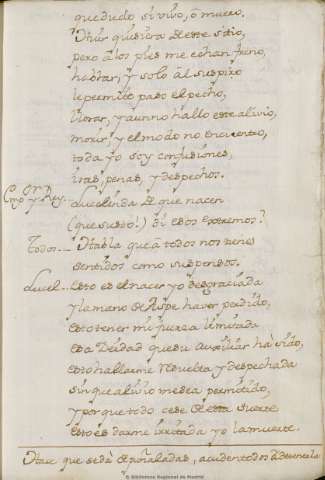 que dudo si vivo, ò muero.
Huir quisiera de este sitio,
pero à los pies me echan freno,
hablar, y solo àl suspiro
le permito paso el pecho,
llorar, y aun no hallo este alivio,
morir, y el modo no encuentro,
toda yo soy confusiones,
iras, penas, y despechos.
Emp.or y Rey. Lucelinda de que nacen
(que susto!) di esos extremos?
Todos... Habla que à todos nos tienes
sentidos como suspensos.
Lucel... Esto es el nacer yo desgraciada
y la mano de haver perdido,
esto tener mi furia limitada
esa Deidad que su auxiliar hà sido,
esto hallarme resuelta y despechada
sin que alivio me sea permitido,
y porque todo cese de esta suerte
esto es darme irritada yo la muerte.
Hace que se dà de puñaladas, acuden todos à detenerla
© Biblioteca Regional de Madrid